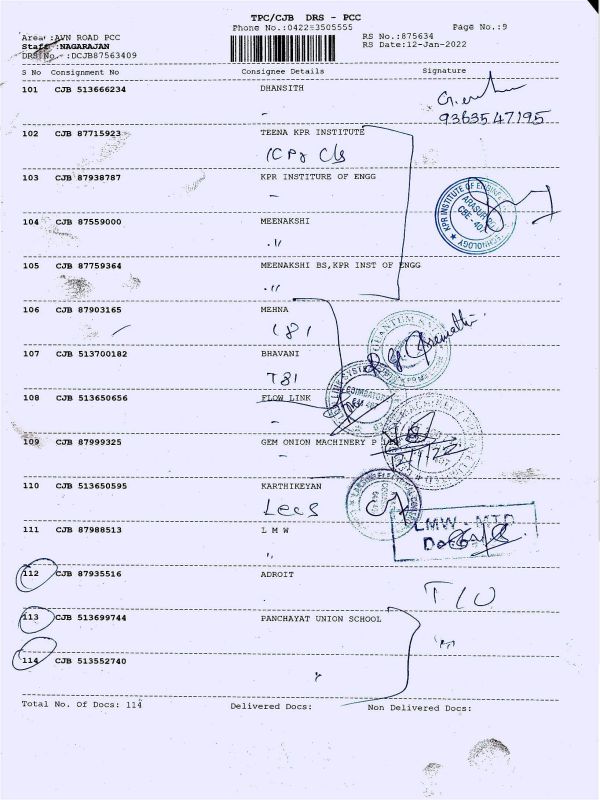 TPC/CJB DRS - PCC
Area :AVN ROAD PCC Phone No.:04222-3505555 Page No.:9
Staff :NAGARAJAN RS No.:875634
DRS No.- :DCJB87563409 RS Date:12-Jan-2022
S No Consignment No Consignee Details Signature
101 CJB 513666234 DHANSITH
9363547195
102 CJB 87715923 TEENA KPR INSTITUTE
103 CJB 87938787 KPR INSTITURE OF ENGG
KPR INSTITUTE OF ENGINEERING
104 CJB 87559000 MEENAKSHI
105 CJB 87759364 MEENAKSHI BS,KPR INST OF ENGG
106 CJB 87903165 MEHNA
181
107 CJB 513700182 BHAVANI
T81
108 CJB 513650656 FLOW LINK
COIMBATORE
109 CJB 87999325 GEM ONION MACHINERY P
12/1/22
110 CJB 513650595 KARTHIKEYAN
Lecs
111 CJB 87988513 L M W
LMW - MTD
112 CJB 87935516 ADROIT
T/U
113 CJB 513699744 PANCHAYAT UNION SCHOOL
114 CJB 513552740
Total No. Of Docs: 114 Delivered Docs: Non Delivered Docs: